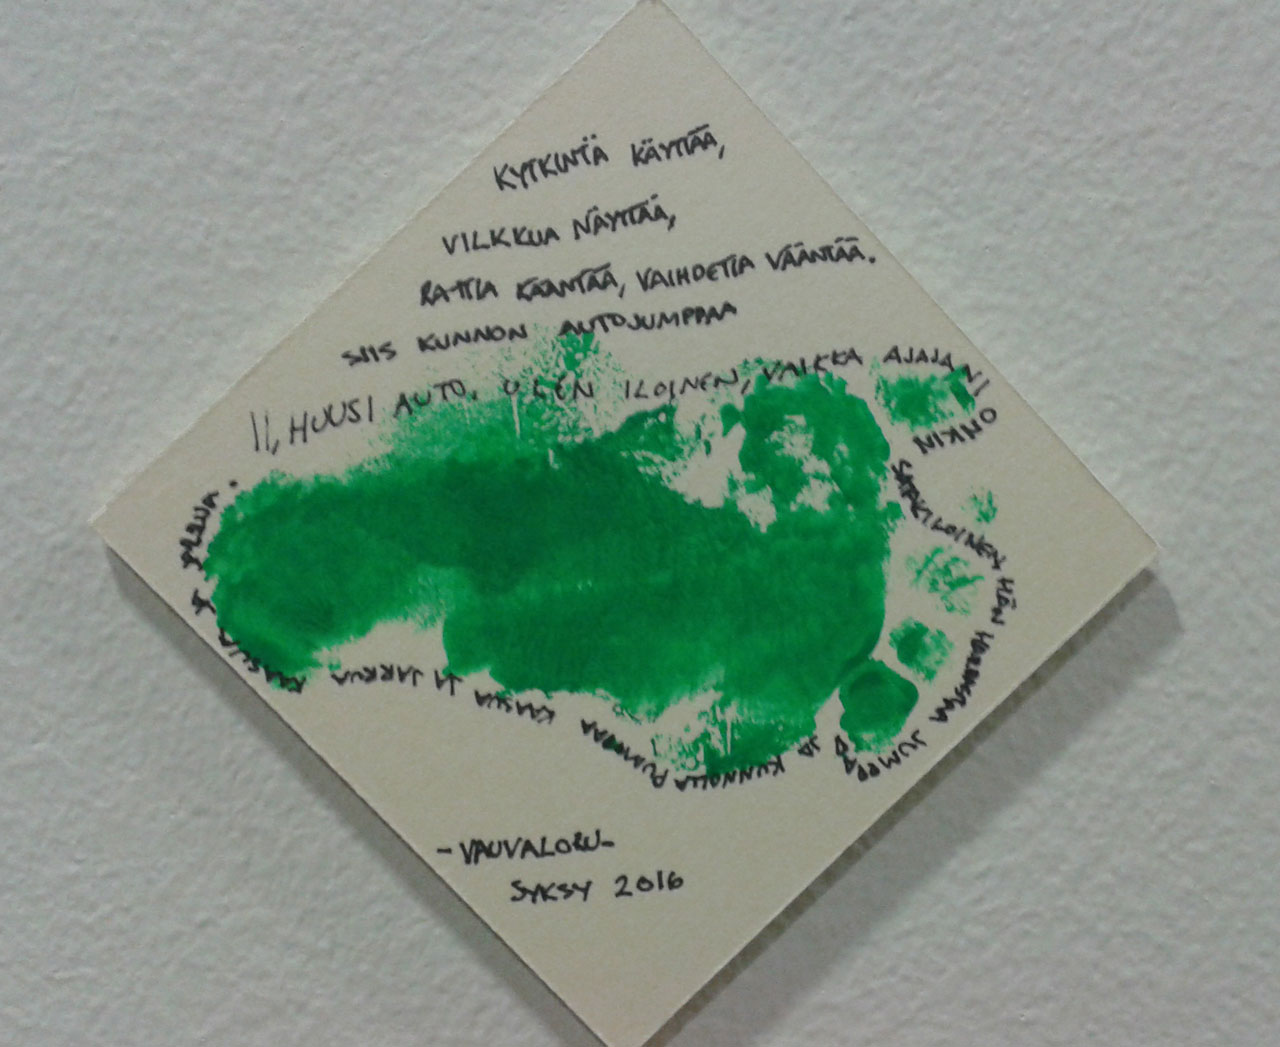 KYTKINTÄ KÄYTTÄÄ,
VILKKUA NÄYTTÄÄ,
RATTIA KÄÄNTÄÄ, VAIHDETTA VÄÄNTÄÄ.
SIIS KUNNON AUTOJUMPPAA
II, HUUSI AUTO. OLEN ILOINEN, VAIKKA AJAJANI ONKIN SATAKILOINEN HÄN HARRASTAA JUMPPAA JA KUNNOLLA PUMPPAA KAASUA JA JARRUA KAASUA JA JARRUA.
-VAUVALORU-
SYKSY 2016